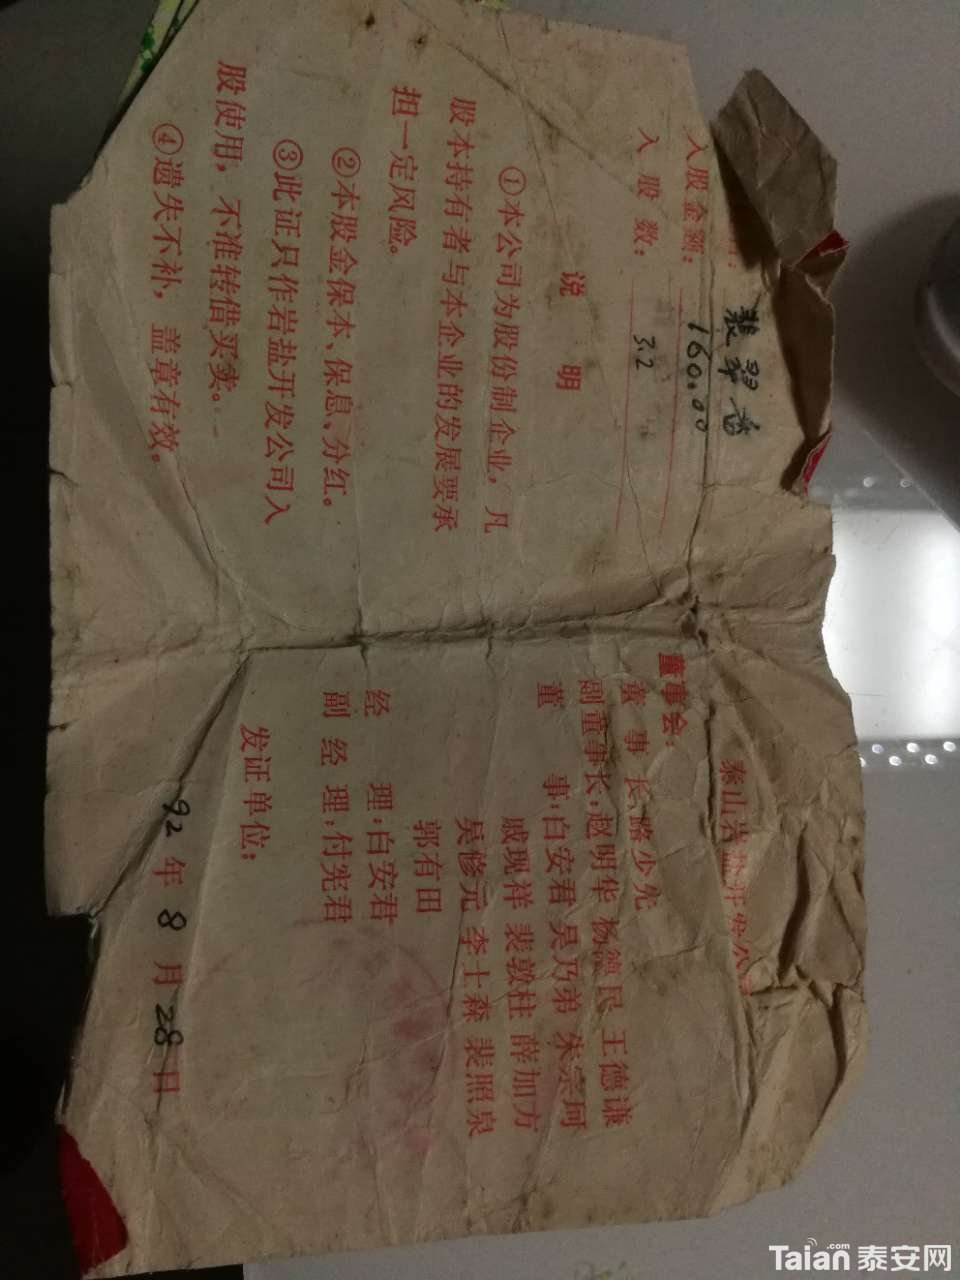 入股金额: 160.00
入股数: 3.2
说明
①本公司为股份制企业，凡
股本持有者与本企业的发展要承
担一定风险。
②本股金保本、保息、分红。
③此证只作岩盐开发公司入
股使用，不准转借买卖。
④遗失不补，盖章有效。
泰山岩盐开发公司
董事会:
董事长:路少先
副董事长:赵明华 杨德民 王德谦
董事:白安君 吴乃弟 朱宗珂
戚现祥 裴敦柱 薛加方
吴修元 李士森 裴照泉
郭有田
经理:白安君
副经理:付宪君
发证单位:
92年8月28日
Taian.com 泰安网